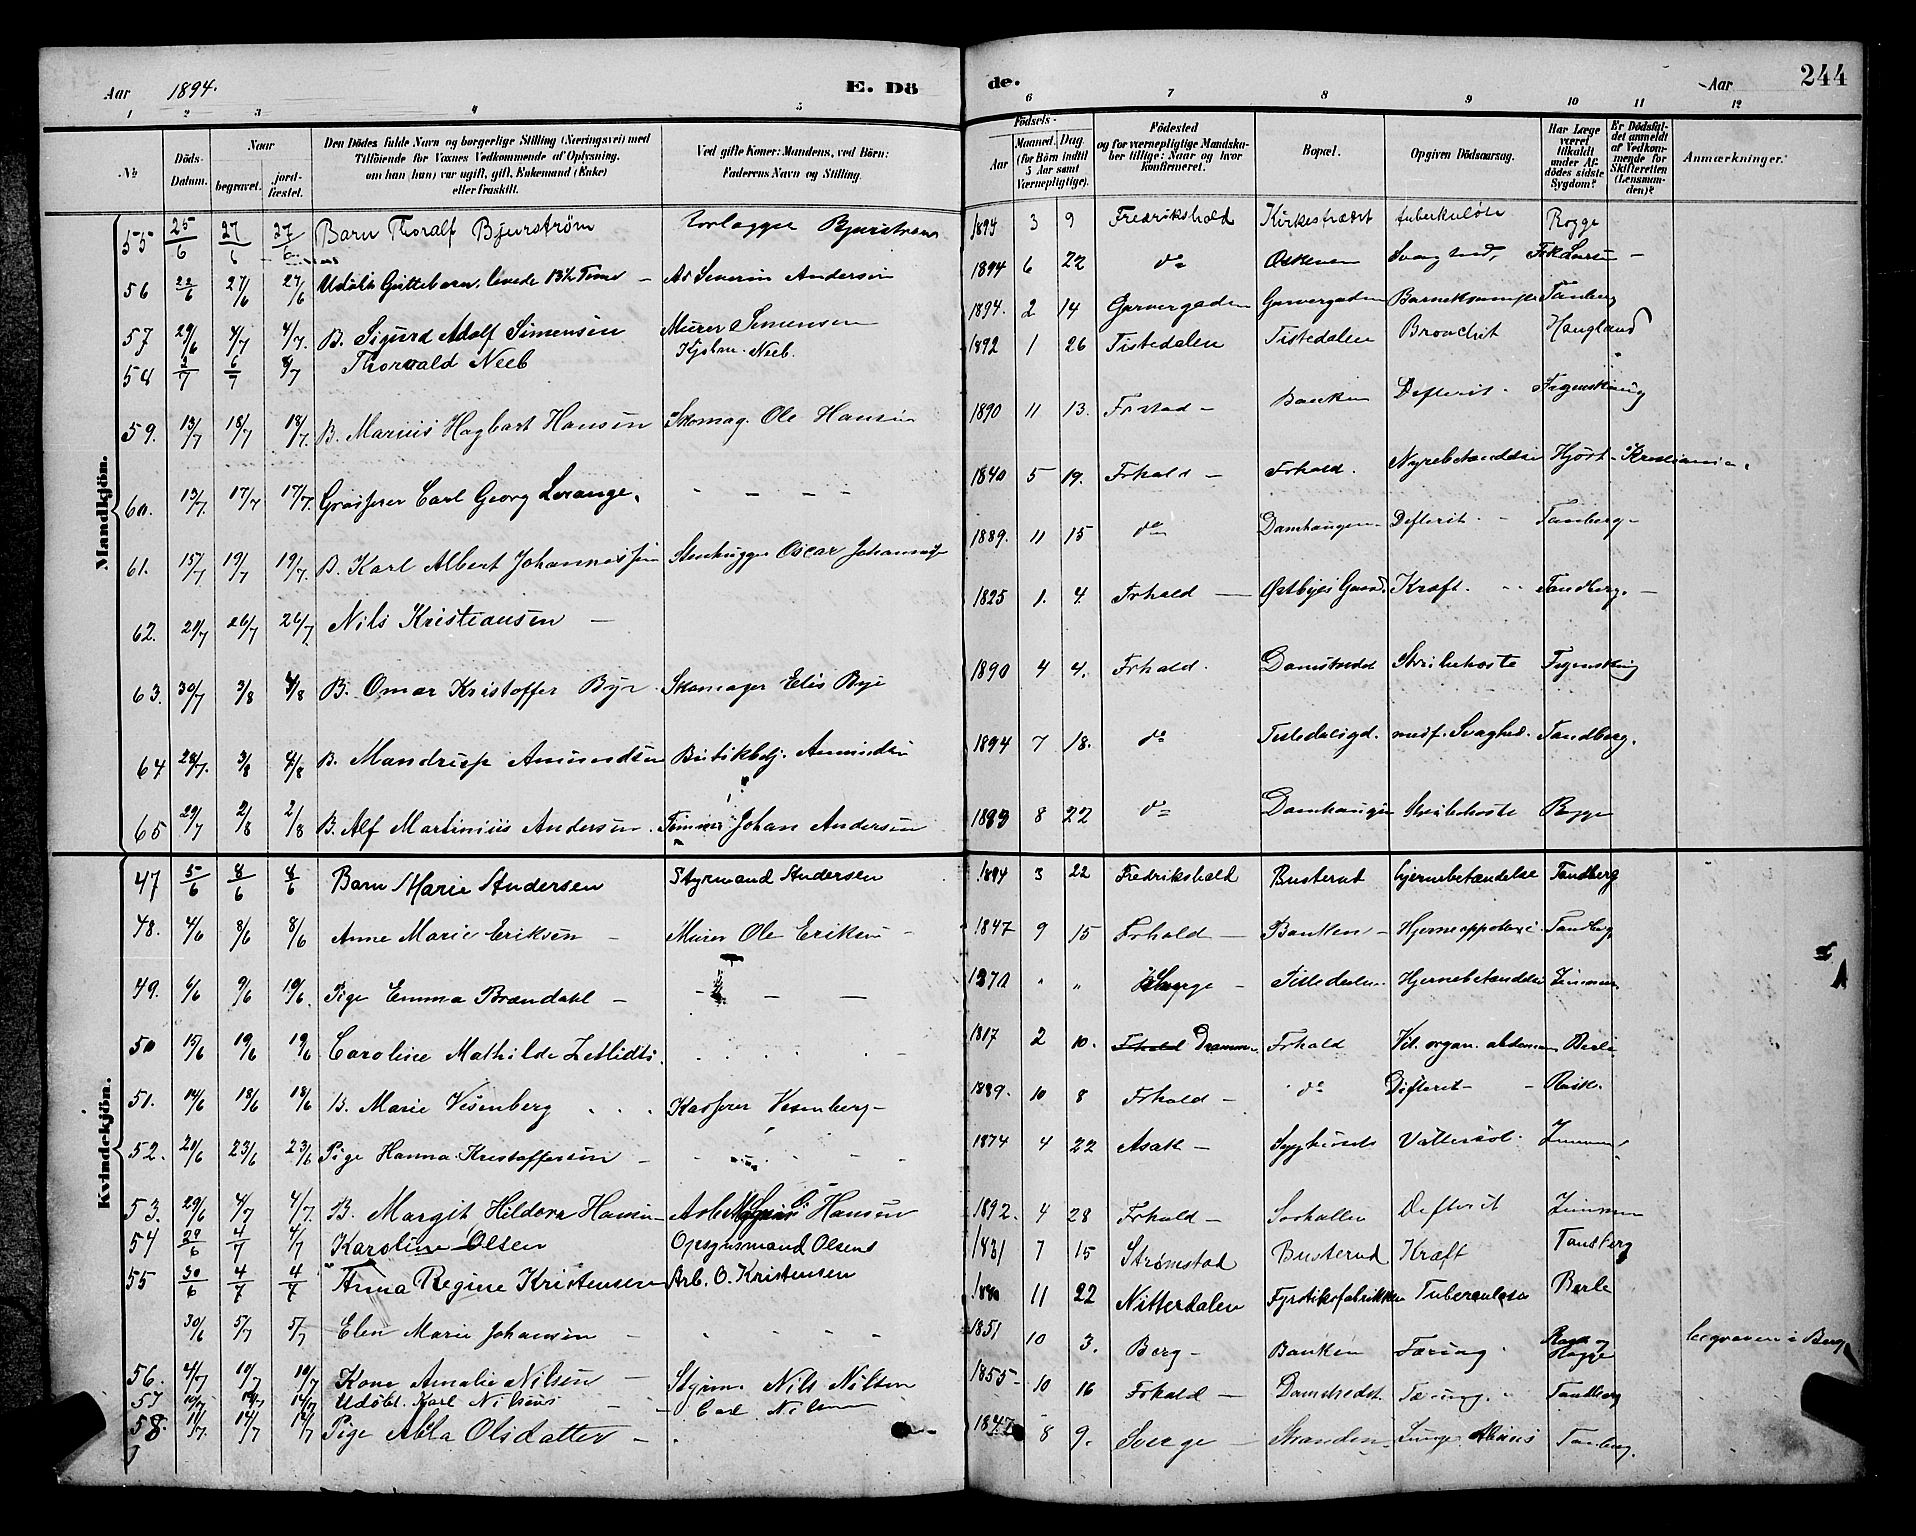 Aar 1894. E. Dö de. Aar 244
1 2 3 4 5 6 7 8 9 10 11 12
No. Döds-Datum. Naar begravet. jordfæstet. Den Dödes fulde Navn og borgerlige Stilling (Næringsvei) med Tilföiende for Voxnes Vedkommende af Oplysning, om han (hun) var ugift, gift, Enkemand (Enke) eller fraskilt. Ved gifte Koner: Mandens, ved Börn: Faderens Navn og Stilling. Födsels- Aar Maaned. Dag (for Börn indtil 5 Aar samt Værnepligtige). Födested og for værnepligtige Mandskaber tillige: Naar og hvor konfirmeret. Bopæl. Opgiven Dödsaarsag. Har Læge været tilkaldt under Afdödes sidste Sygdom? Er Dödsfaldet anmeldt af Vedkommende for Skifteretten (Lensmanden)? Anmærkninger.
Mandkjön.
55 25/6 27/6 27/6 Barn Thoralf Bjurström Bjurström 1894 3 9 Fredrikshald Kirkestrædet tuberkuløse Rogge
56 22/6 27/6 27/6 Udøbt Guttebarn, levede 13½ Timer – Ar Severin Andersen 1894 6 22 do Svaghed,
57 29/6 4/7 4/7. B. Sigurd Adolf Simensen Murer Simensen 1894. 2 14 Garvergaden Garvergaden Barnekrampe Tanberg
58 2/7 6/7 Thorvald Neeb Neeb. 1892 1 26 Tistedalen Tistedalen Bronchit Haugland
59. 13/7 18/7 18/7. B. Marius Hagbart Hansen Skomag. Ole Hansen 1890 11 13. Banken Defterit. Fygenskoug
60. 13/7. 17/7 17/7. Grosserer Carl Georg Lorange. – – – – 1840 5 19. Frhald – Frhald. Nyrebetændelse Hjort – Kristiania.
61. 15/7 19/7 19/7. B. Karl Albert Johannessen Stenhugger Oscar Johannessen 1889. 11 15 do Damhaugen – Defterit. – Tanberg –
62. 21/7 26/7 26/7. Nils Kristiansen – 1825 1. 4. Frhald – Østbyes Gaard Kræft. Tandberg. –
63. 30/7 3/8 4/8 B. Omar Kristoffer Bye Skomager Elis Bye 1890 4 4. Frhald. Damstrædet Strubehoste Fygenskoug
64 28/7. 3/8 4/8 B. Mandrup Amundsen Butikbetj. Amundsen 1894 7 18. do Tistedalsgd. medf. Svaghed. Tandberg.
65 29/7 2/8 2/8 B. Alf Martinius Andersen. Johan Andersen 1889 8 22 do Damhaugen Strubehoste Rogge
Kvindekjön.
47 5/6 8/6 8/6 Barn Marie Andersen Styrmand Andersen 1894 3 22 Fredrikshald Busterud hjernebetændelse Tandberg
48. 4/6 8/6 8/6 Anne Marie Eriksen – Murer Ole Eriksen – 1847 9 15 Frhald – Banken – Hjerneappoleksi Tandberg
49. 6/6 9/6 10/6. Pige Emma Brændahl – – – – 1870 " " Sverge – Tistedalen Hjernebetændelse Zimmer
50 15/6 19/6 19/6 Caroline Mathilde Zetlidtz 1817 2 10. Frhald Drammen Frhald Vit. organ. abdomen Berle
51. 14/6 18/6 18/6 B. Marie Vesenberg Kasserer Vesenberg – 1889. 10 8 Frhald – do Difterit – – Rusk.
52. 20/6 23/6 23/6 Pige Hanna Kristoffersen – 1874 4 22 Asak – Sygehuset Vattersot. Zimmer
53. 29/6 4/7 4/7. B. Margit Hildora Hansen – Hansen 1892. 4 28 Frhald – Defterit Zimmer
54 29/6 4/7 4/7 Karoline Olsen Opsynsmand Olsens 1831 7 15 Strømstad Busterud Kræft Tandberg
55 30/6 4/7 4/7 Anna Regine Kristensen Arb. O. Kristensen 11 22 Nitterdalen Fyrstikfabrikken Tuberculose Berle
30/6 5/7 5/7 Elen Marie Johansen – 1851 10 3. Berg – Banken Tæring. Rusk og Rogge begraven i Berg
56. 4/7 10/7 10/7 Kone Amalie Nilsen – Styrm. Nils Nilsen 1855 – 10 16 Frhald – Damstrædet. Tæring. Tandberg
57 10/7 14/7 14/7 Udøbt. Karl Nilsens – – Carl Nilsen
58. 11/7. 14/7 14/7 Pige Olsdatter – . 1847 8 9. Sverge – Stranden. Tanberg.